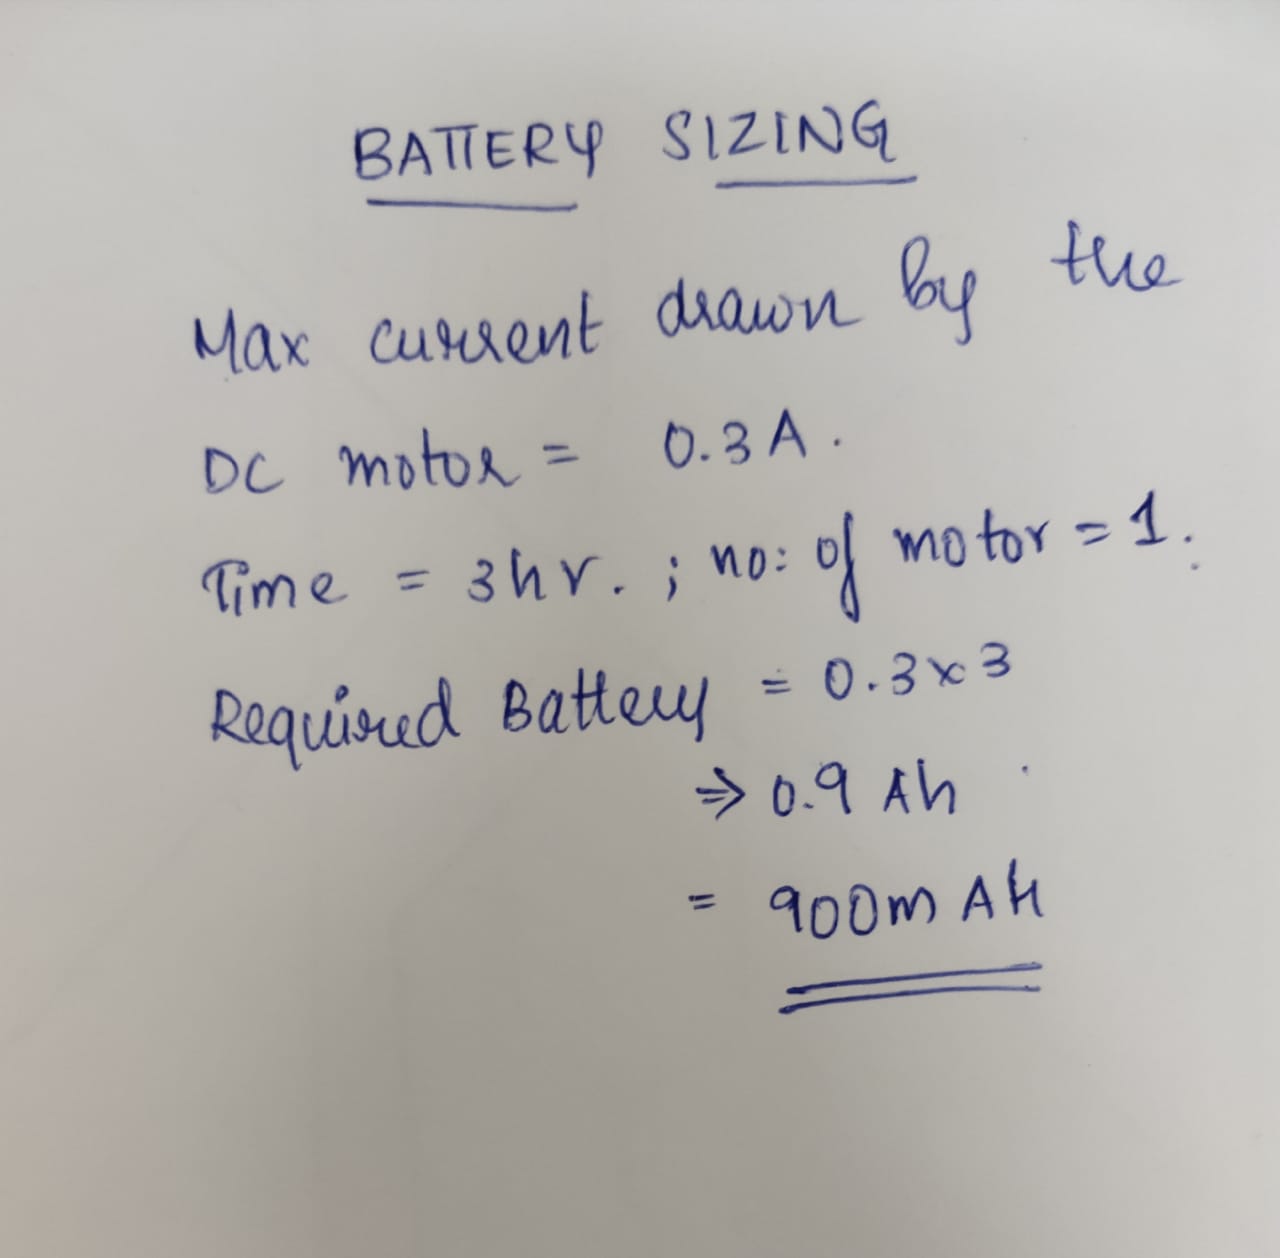 BATTERY SIZING
Max current drawn by the
DC motor = 0.3 A.
Time = 3hr. ; no: of motor = 1.
Required Battery = 0.3 x 3
⇒ 0.9 Ah
= 900m AH